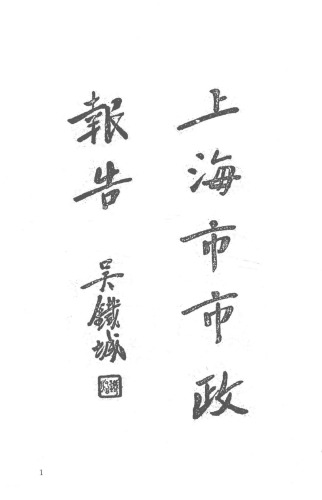 上海市市政
報告
吳鐵城
1